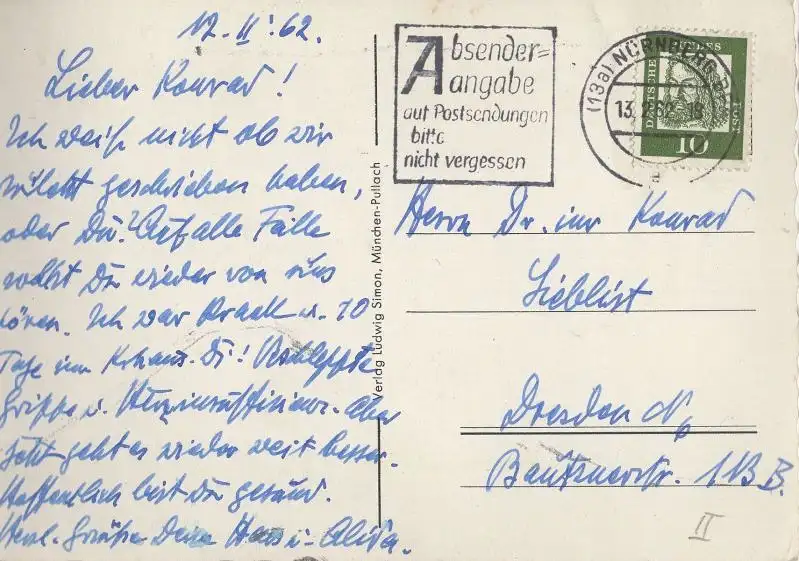 12. II. 62.
Lieber Konrad!
Ich weiß nicht ob wir
zuletzt geschrieben haben,
oder Du? Auf alle Fälle
sollst Du wieder von uns
hören. Ich war krank u. 10
Tage im Krhaus. Di! Verschleppte
Grippe u. Herzinsuffizienz. Aber
jetzt geht es wieder weit besser.
Hoffentlich bist Du gesund.
Herzl. Grüße Deine Hans u.
Absender=
angabe
auf Postsendungen
bitte
nicht vergessen
(13a) NÜRNBERG
13.2.62-18
DEUTSCHE BUNDESPOST
10
Verlag Ludwig Simon, München-Pullach
Herrn Dr. iur Konrad
Lieblist
Dresden N6
Bautznerstr. 11B
II